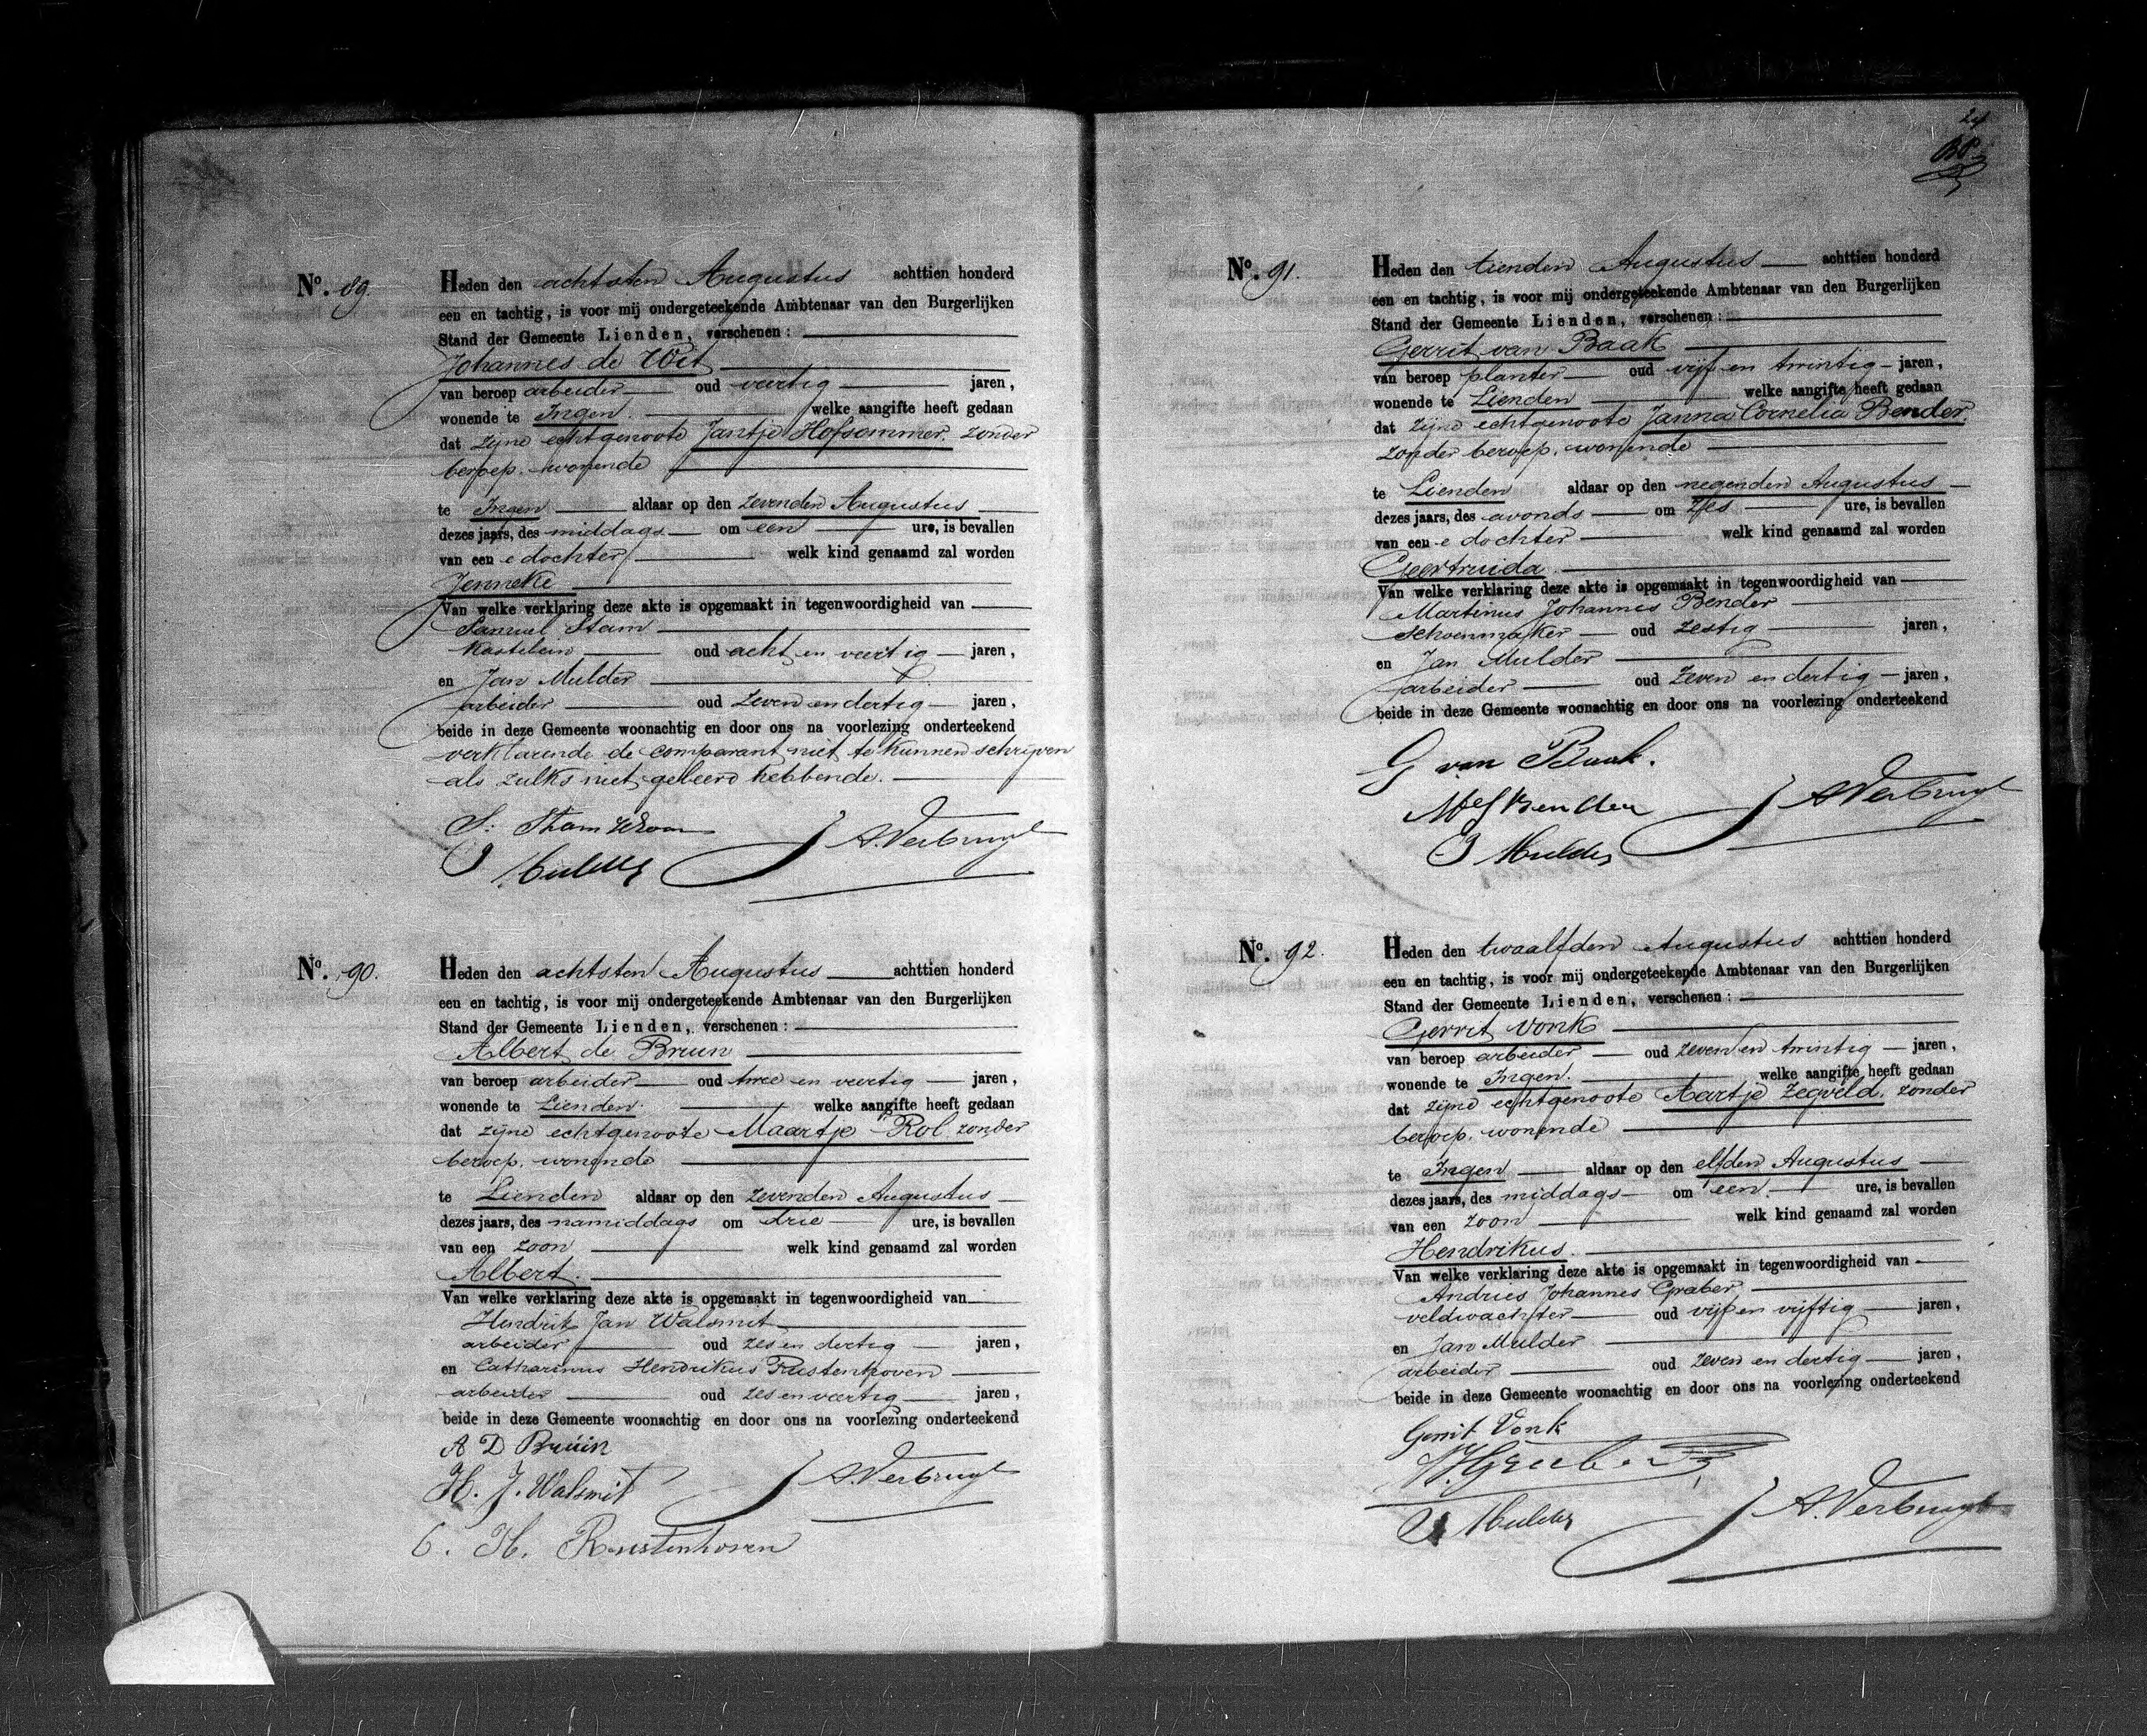 No. 89.
Heden den achtsten Augustus achttien honderd
een en tachtig, is voor mij ondergeteekende Ambtenaar van den Burgerlijken
Stand der Gemeente Lienden, verschenen:
Johannes de Wit
van beroep arbeider oud veertig jaren,
wonende te Ingen. welke aangifte heeft gedaan
dat zijne echtgenoote Jantje Hofsommer. zonder
beroep. wonende
te Ingen aldaar op den zevenden Augustus
dezes jaars, des middags om een ure, is bevallen
van een e dochter welk kind genaamd zal worden
Jenneke
Van welke verklaring deze akte is opgemaakt in tegenwoordigheid van
Samuel Stam
Kastelein oud acht en veertig jaren,
en Jan Mulder
arbeider oud zeven en dertig jaren,
beide in deze Gemeente woonachtig en door ons na voorlezing onderteekend
verklarende de comparant niet te kunnen schrijven
als zulks niet geleerd hebbende.
S: Stam
J Mulder
A. Verbrugh
No. 90.
Heden den achtsten Augustus achttien honderd
een en tachtig, is voor mij ondergeteekende Ambtenaar van den Burgerlijken
Stand der Gemeente Lienden, verschenen:
Albert de Bruin
van beroep arbeider oud twee en veertig jaren,
wonende te Lienden. welke aangifte heeft gedaan
dat zijne echtgenoote Maartje Rol zonder
beroep. wonende
te Lienden aldaar op den zevenden Augustus
dezes jaars, des namiddags om drie ure, is bevallen
van een zoon welk kind genaamd zal worden
Albert.
Van welke verklaring deze akte is opgemaakt in tegenwoordigheid van
Hendrik Jan Walsmit
arbeider oud zes en dertig jaren,
en Catharinus Hendrikus Rustenhoven
arbeider oud zes en veertig jaren,
beide in deze Gemeente woonachtig en door ons na voorlezing onderteekend
A D Bruin
H. J. Walsmit
A. Verbrugh
C. H. Rustenhoven
24
No. 91.
Heden den tienden Augustus achttien honderd
een en tachtig, is voor mij ondergeteekende Ambtenaar van den Burgerlijken
Stand der Gemeente Lienden, verschenen:
Gerrit van Baak
van beroep planter oud vijf en twintig jaren,
wonende te Lienden welke aangifte heeft gedaan
dat zijne echtgenoote Janna Cornelia Bender
zonder beroep. wonende
te Lienden aldaar op den negenden Augustus
dezes jaars, des avonds om zes ure, is bevallen
van een e dochter welk kind genaamd zal worden
Geertruida.
Van welke verklaring deze akte is opgemaakt in tegenwoordigheid van
Martinus Johannes Bender
schoenmaker oud zestig jaren,
en Jan Mulder
arbeider oud zeven en dertig jaren,
beide in deze Gemeente woonachtig en door ons na voorlezing onderteekend
G van Baak.
Bender
A. Verbrugh
J Mulder
No. 92.
Heden den twaalfden Augustus achttien honderd
een en tachtig, is voor mij ondergeteekende Ambtenaar van den Burgerlijken
Stand der Gemeente Lienden, verschenen:
Gerrit Vonk
van beroep arbeider oud zeven en twintig jaren,
wonende te Ingen. welke aangifte heeft gedaan
dat zijne echtgenoote Aartje Zegveld. zonder
beroep. wonende
te Ingen aldaar op den elfden Augustus
dezes jaars, des middags om een ure, is bevallen
van een zoon welk kind genaamd zal worden
Hendrikus.
Van welke verklaring deze akte is opgemaakt in tegenwoordigheid van
Andries Johannes Graber,
veldwachter oud vijf en vijftig jaren,
en Jan Mulder
arbeider oud zeven en dertig jaren,
beide in deze Gemeente woonachtig en door ons na voorlezing onderteekend
Gerrit Vonk
J Mulder
A. Verbrugh